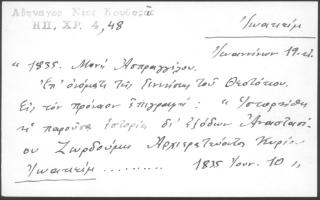 Αθηναγορ Νεος Κουβαρᾶ
ΗΠ. ΧΡ. 4, 48
Ἰωακείμ
Ἰωαννίνων 19.
" 1835. Μονή Ἀσπραγγέλου.
Ἐπ' εἰκόνος τῆς γεννήσεως τοῦ Θεοτόκου.
Εἰς τόν πρόναον ἐπιγραφή : " Ἱστορήθη
ἡ παροῦσα ἱστορία δι' ἐξόδων Ἀναστασί-
ου Ζωρδούμη Ἀρχιερατεύοντος Κυρίου
Ἰωακείμ .......... 1835 Ἰουν. 10 "